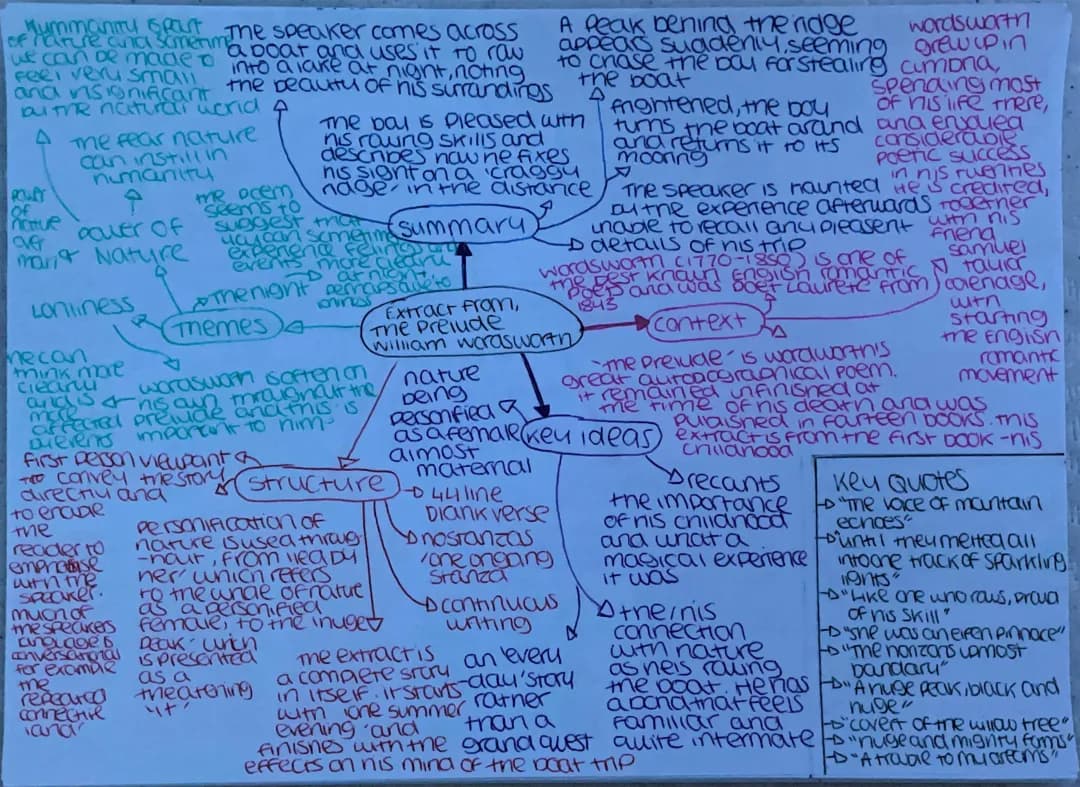 Extract from,
The Prelude
William Wordsworth
Summary
The speaker comes across
a boat and uses it to row
into a lake at night, noting
the beauty of his surrandings
The boy is pleased with
his rowing skills and
describes how he fixes
his sight on a 'craggy
ridge' in the distance
A peak behind the ridge
appears suddenly, seeming
to chase the boy for stealing
the boat
frightened, the boy
turns the boat around
and returns it to its
mooring
The speaker is haunted
by the experience afterwards
unable to recall any pleasent
details of his trip
Context
Wordsworth (1770-1850) is one of
the best known English romantic
poets and was Poet Laurete from
1843
Wordsworth
grew up in
cumbria,
spending most
of his life there,
and enjoyed
considerable
poetic success
in his twenties
He is credited,
together
with his
friend
samuel
Taylor
with
starting
the English
romantic
movement
'The Prelude' is wordworth's
great autobiographical poem.
it remained unfinished at
the time of his death and was
published in fourteen books. This
extract is from the first book - his
childhood
Key ideas
nature
being
personified
as a female
almost
maternal
recants
the importance
of his childhood
and what a
magical experience
it was
the/his
connection
with nature
as he is rowing
the boat. He has
a bond that feels
familiar and
quite intermate
an 'every
-day' story
rather
than a
grand quest
Structure
First person viewpoint
to convey the story
directly and
to enable
the
reader to
with the
speaker.
much of
the speakers
language is
conversational
for example
the
repeated
connective
'and'
Personification of
nature is used throug
-hout, from 'lead by
her' which refers
to the whole of nature
as a personified
female, to the 'huge
peak' which
is presented
as a
theatening
"it"
44 line
blank verse
no stanzas
'one ongoing
stanza
continuous
writing
The extract is
a complete story
in itself. it starts
with 'one summer
evening' and
finishes with the
effects on his mind of the boat trip
Themes
Power of
Nature
The fear nature
can instill in
humanity
Hummanity is part
of nature and sometimes
we can be made to
feel very small
and insignificant
by the natural world
Power
of
nature
over
man
The night
The poem
seems to
suggest that
you can sometimes
experience
events more clearly
at night,
perhaps due to
Lonliness
wordsworth is often on
his own throughout the
prelude and this is
important to him
he can
think more
clearly
and is
more
affected
by events
Key Quotes
"The voice of mountain
echoes"
"until they melted all
into one track of sparkling
lights"
"Like one who rows, proud
of his skill"
"she was an elfen pinnace"
"The horizons upmost
bandary"
"A huge peak, black and
huge"
"covert of the willow tree"
"huge and mighty forms"
"A trouble to my dreams"